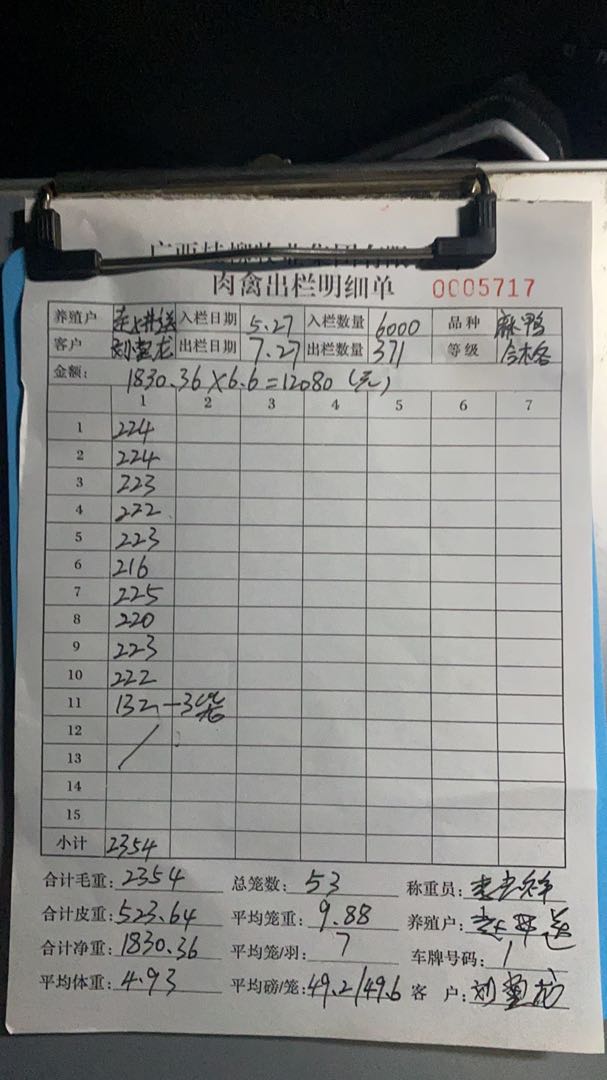 肉禽出栏明细单 0005717
养殖户 入栏日期 5.27 入栏数量 6000 品种 麻鸭
客户 出栏日期 7.27 出栏数量 371 等级 合格
金额: 1830.36×6.6=12080(元)
1 2 3 4 5 6 7
1 224
2 224
3 223
4 222
5 223
6 216
7 225
8 220
9 223
10 222
11 132—3笼
12
13
14
15
小计 2354
合计毛重: 2354 总笼数: 53 称重员:
合计皮重: 523.64 平均笼重: 9.88 养殖户:
合计净重: 1830.36 平均笼/羽: 7 车牌号码: /
平均体重: 4.93 平均磅/笼: 49.2/49.6 客户: